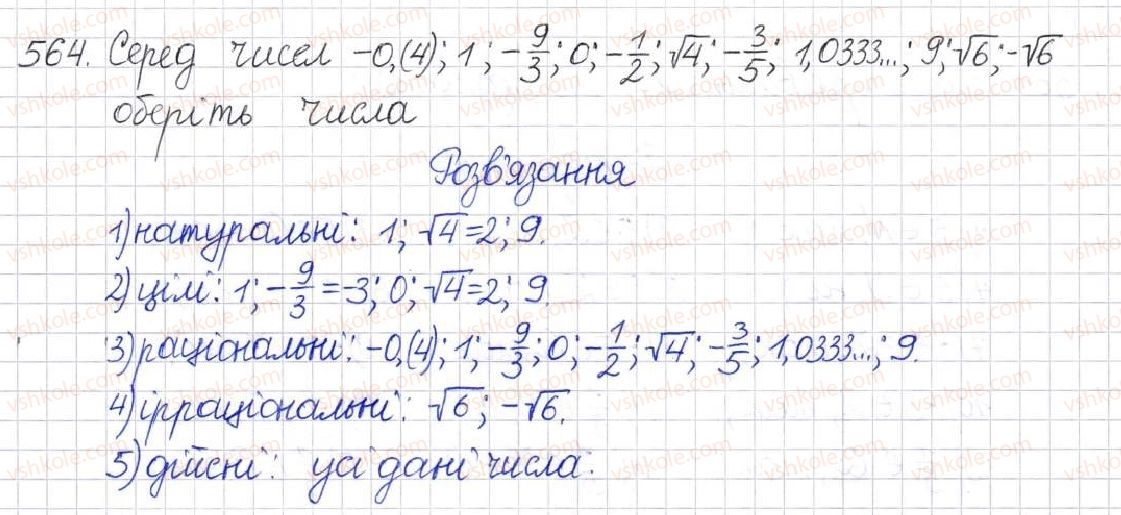 564. Серед чисел -0,(4); 1; -9/3; 0; -1/2; √4; -3/5; 1,0333...; 9; √6; -√6
оберіть числа
Розв'язання
1) натуральні: 1; √4=2; 9.
2) цілі: 1; -9/3=-3; 0; √4=2; 9.
3) раціональні: -0,(4); 1; -9/3; 0; -1/2; √4; -3/5; 1,0333...; 9.
4) ірраціональні: √6; -√6.
5) дійсні: усі дані числа.
vshkole.com